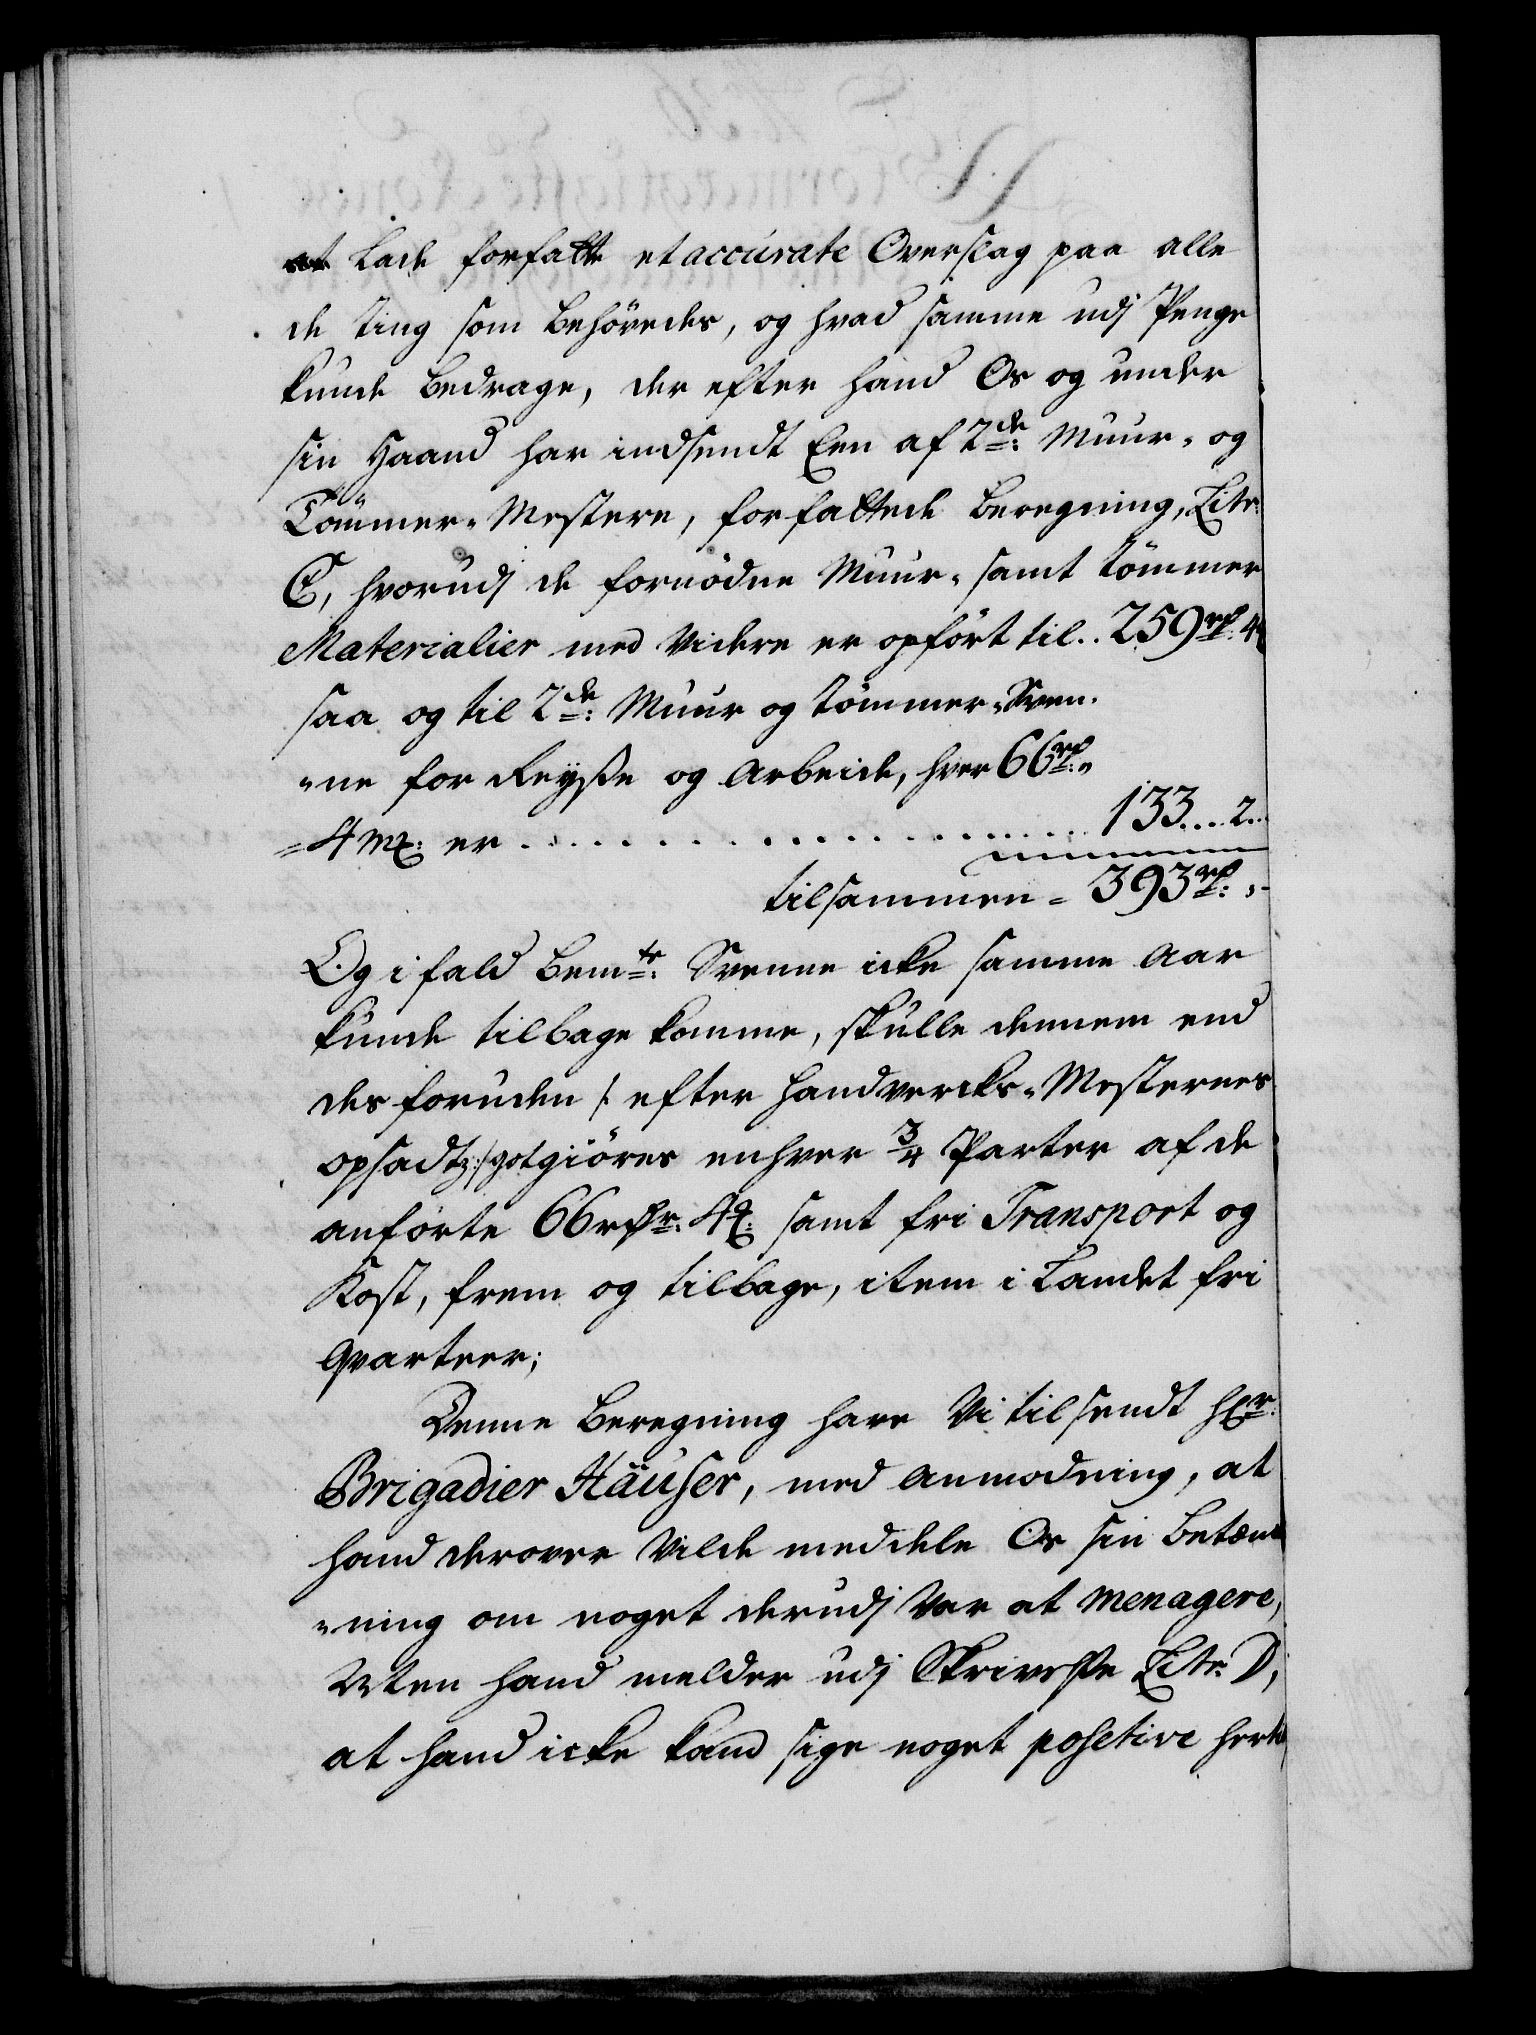 at lade forfatte et accurate Overslag paa alle
de ting som behövedes, og hvad samme udj Penge
kunde bedrage, der efter hand Os og under
sin Haand har indsendt Een af 2de: Muur- og
Tömmer-Mestere, forfattede beregning, Litr:
C, hvorudj de fornödne Muur- samt tömmer
Materialier med videre er opfört til.. 259 rd: 4
saa og til 2de: Muur og tömmer-Sven-
-ne for Reyße og Arbeide, hver 66 rd:
4 mk: er . . . . . . . . . . . . . . . . . . 133. . . . 2. .
tilsammen = 393 rd: „-
Og i fald bemte: Svenne icke samme Aar
kunde tilbage komme, skulle dennem end
des foruden /: efter Handvercks-Mesternes
opsadtz :/ gotgiöres enhver 3/4 Parter af de
anförte 66 rdr: 4 mk: samt fri Transport og
Kost, frem og tilbage, item i Landet fri
Qvarteer;
Denne beregning have Vi tilsendt Hr:
Brigadier Häuser, med Anmodning, at
hand derover vilde meddele Os sin betænk
-ning om noget derudj var at menagere,
Men hand melder udj Skrivelse Litr: D,
at hand icke kand sige noget posetive hertil